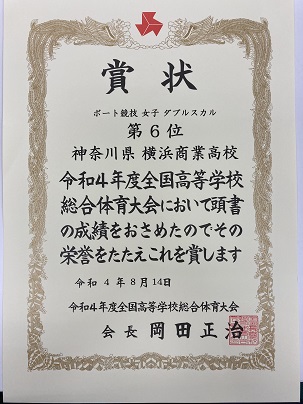 賞状
ボート競技 女子 ダブルスカル
第6位
神奈川県 横浜商業高校
令和4年度全国高等学校
総合体育大会において頭書
の成績をおさめたのでその
栄誉をたたえこれを賞します
令和 4 年 8 月 14日
令和4年度全国高等学校総合体育大会
会長 岡田正治